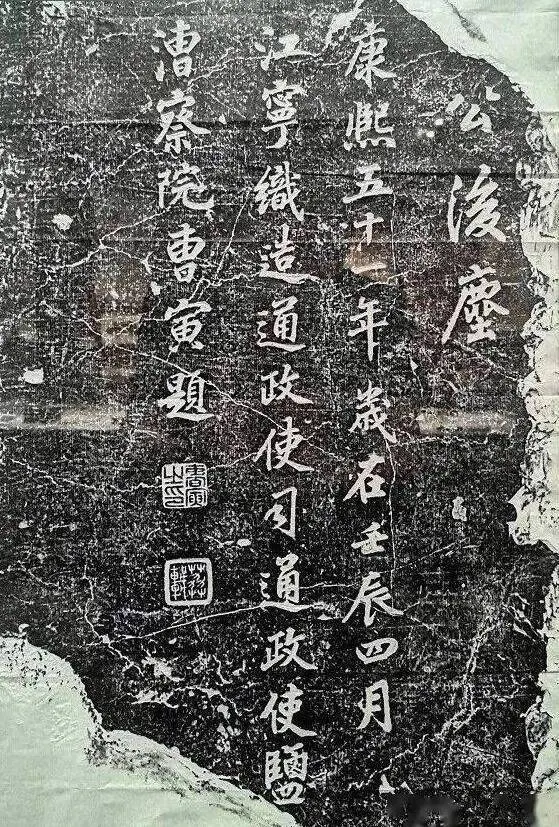 公後塵
康熙五十一年歲在壬辰四月
江寧織造通政使司通政使鹽
漕察院曹寅題
荔軒